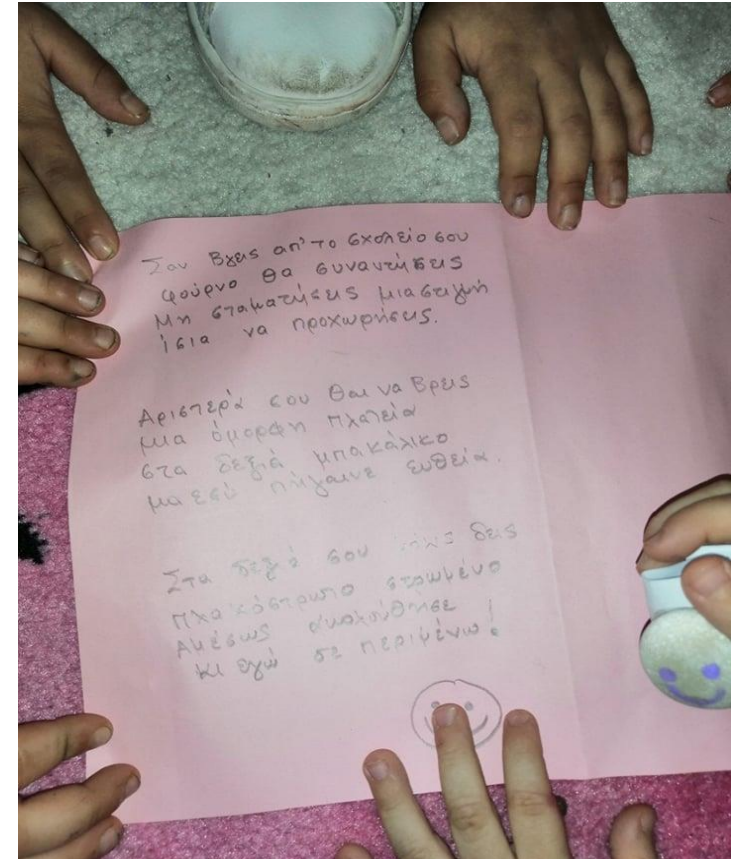 Σαν βγεις απ' το σχολείο σου
φούρνο θα συναντήσεις
Μη σταματήσεις μια στιγμή
ίσια να προχωρήσεις.
Αριστερά σου θαι να βρεις
μια όμορφη πλατεία
στα δεξιά μπακάλικο
μα εσύ πήγαινε ευθεία.
Στα δεξιά σου δεις
πλακόστρωτο στρωμένο
Αμέσως ακολούθησε
κι εγώ σε περιμένω!